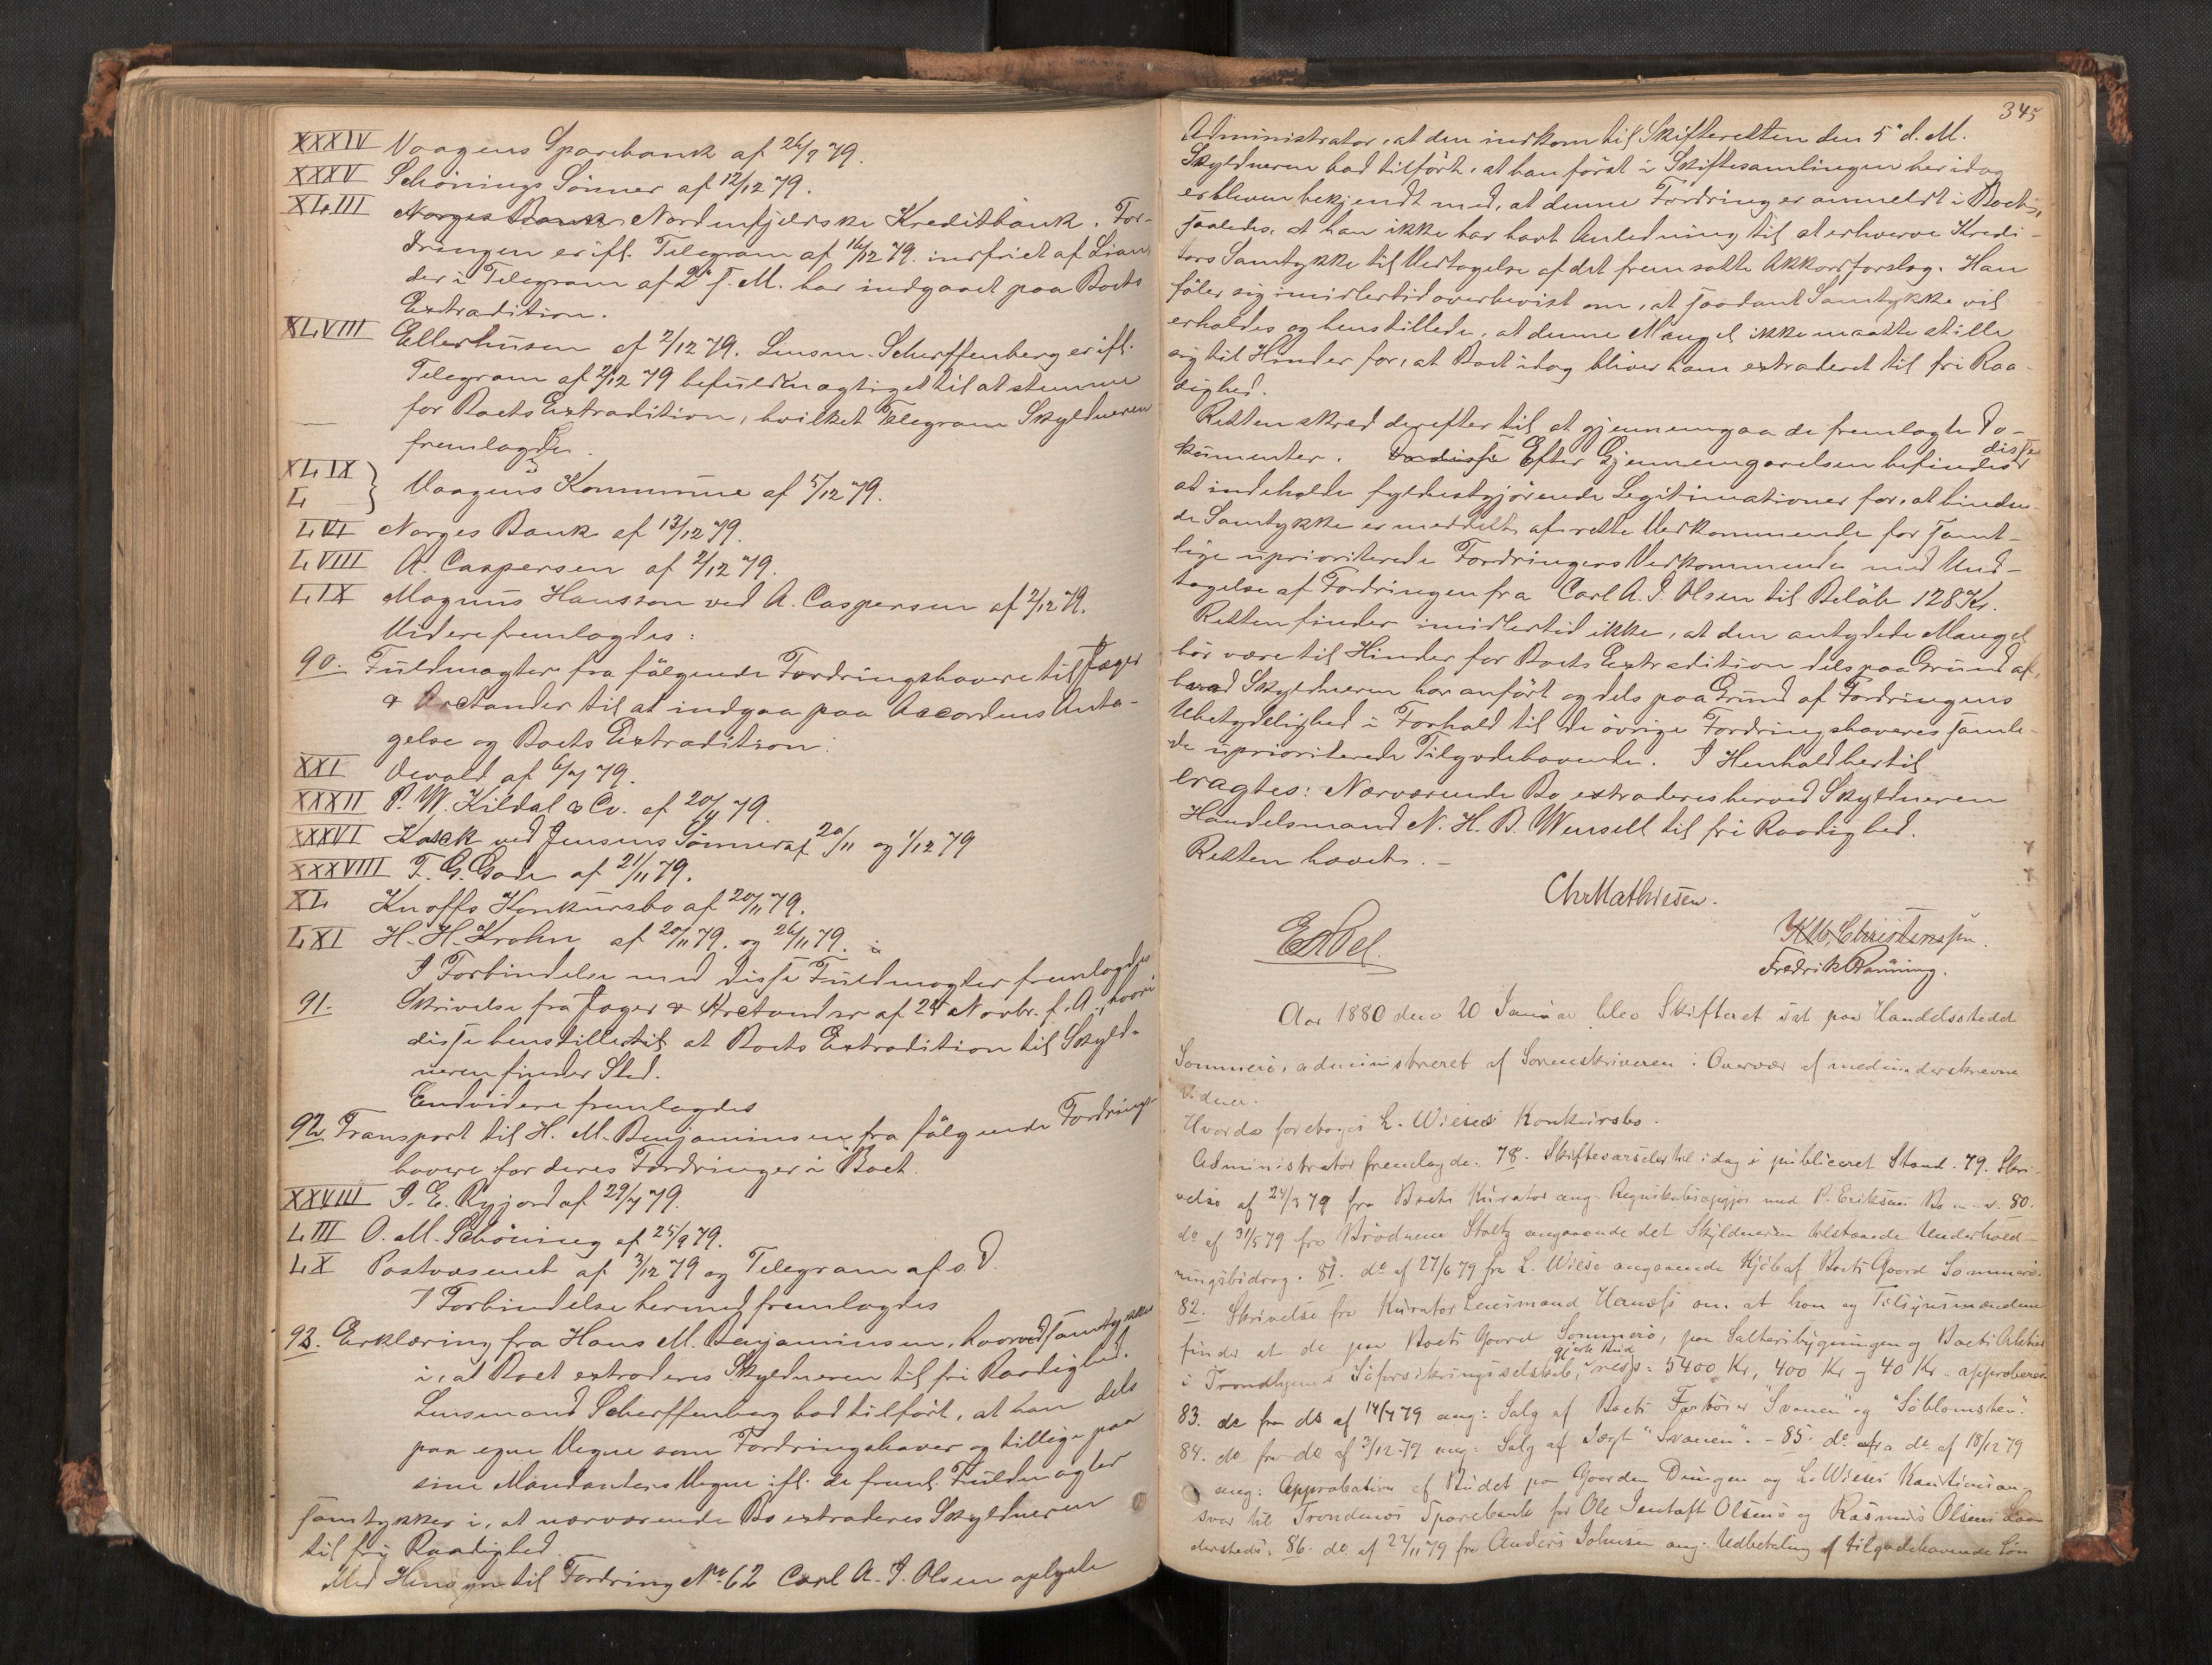 XXXIV Vaagens Sparebank af 26/9 79.
XXXV Schönings Sönner af 12/12 79.
XLIII Norges Bank Nordenfjeldske Kreditbank. For-
dringen er ifl. Telegram af 16/12 79. indfriet af
der i Telegram af 2 f. M. har indgaaet paa Boets
Extradition.
XLVIII Ellerhusen af 2/12 79. Lensm. Scherffenberg er ifl.
Telegram af 2/12 79 befuldmægtiget til at stemme
for Boets Extradition, hvilket Telegram Skyldneren
fremlagde.
XLIX
L } Vaagens Kommune af 5/12 79.
LVI Norges Bank af 13/12 79.
LVIII A. Caspersen af 2/12 79.
LIX Magnus Hansson ved A. Caspersen af 2/12 79.
Videre fremlagdes:
90. Fuldmagter fra fölgende Fordringshavere til Jæger
& Arctander til at indgaa paa Accordens Anta-
gelse og Boets Extradition:
XXI Devold af 6/7 79.
XXXII P. W. Kildal & Co. af 20/11 79.
XXXVI Koack ved Jensens Sönner af 20/11 og 1/12 79
XXXVIII F. G. Gade af 21/11 79.
XL Knoffs Konkursbo af 20/11 79.
LXI H. H. Krohn af 20/11 79. og 26/11 79.
I Forbindelse med disse Fuldmagter fremlagdes
91. Skrivelse fra Jæger & Arctander af 25 Novbr. f. A., hvori
disse henstiller til at Boets Extradition til Skyld-
neren finder Sted.
Endvidere fremlagdes
92. Transport til H. M. Benjaminsen fra fölgende Fordrings-
havere for deres Fordringer i Boet.
XXVIII J. E. Rygjord af 29/7 79.
LIII O. M. Schöning af 25/9 79.
LX Postvæsenet af 3/12 79 og Telegram af s. D.
I Forbindelse hermed fremlagdes
93. Erklæring fra Hans M. Benjaminsen, hvorved samtykkes
i, at Boet extraderes Skyldneren til fri Raadighed.
Lensmand Scherffenberg bad tilfört, at han dels
paa egne Vegne som Fordringshaver og tillige paa
sine Mandanters Vegne ifl. de freml. Fuldmagter
samtykker i, at nærværende Bo extraderes Skyldneren
til fri Raadighed.
Med Hensyn til Fordring No 62 Carl A. J. Olsen oplyste
345
Administrator, at den indkom til Skifteretten den 5 d. M.
Skyldneren bad tilfört, at han först i Skiftesamlingen her idag
er bleven bekjendt med, at denne Fordring er anmeldt i Boet,
saaledes, at han ikke har havt Anledning til at erhverve Kredi-
tors Samtykke til Vedtagelse af det fremsatte Akkordforslag. Han
föler sig imidlertid overbevist om, at saadant Samtykke vil
erholdes og henstillede, at denne Mangel ikke maatte stille
sig til Hinder for, at Boet idag bliver ham extraderet til fri Raa-
dighed.
Retten skred derefter til at gjennemgaa de fremlagte Do-
kumenter. Da disse Efter Gjennemgaaelsen befindes disse
at indeholde fyldestgjörende Legitimationer for, at binden-
de Samtykke er meddelt af rette Vedkommende for samt-
lige uprioriterede Fordringers Vedkommende med Und-
tagelse af Fordringen fra Carl A. J. Olsen til Belöb 128 Kr.
Retten finder imidlertid ikke, at den antydede Mangel
bör være til Hinder for Boets Extradition dels paa Grund af,
hvad Skyldneren har anfört og dels paa Grund af Fordringens
Ubetydelighed i Forhold til de övrige Fordringshaveres samle-
de uprioriterede Tilgodehavende. I Henhold hertil
eragtes: Nærværende Bo extraderes herved Skyldneren
Handelsmand N. H. B. Wensell til fri Raadighed.
Retten hævet. -
Chr Mathiesen.
Fredrik Rönning.
Aar 1880 den 20 Januar blev Skifteret sat paa Handelsstedet
Sommerö, administreret af Sorenskriveren i Overvær af medunderskrevne
Vidner.
Hvorda foretoges L. Wieses Konkursbo.
Administrator fremlagde. 78. Skiftevarsel til idag i publiceret Stand. 79. Skri-
velse af 24/3 79 fra Boets Kurator ang. Regnskabsopgjör med P. Eriksens Bo m. v. 80.
do af 31/5 79 fra Brödrene Stoltz angaaende det Skyldneren tilstaaede Underhold-
ningsbidrag. 81. do af 27/6 79 fra L. Wiese angaaende Kjöb af Boets Gaard Sommerö.
82. Skrivelse fra Kurator Lensmand om at han og Tilsynsmændene
finder at de paa Boets Gaard Sommerö, paa Salteribygningen og Boets Aktier
i Trondhjems Söforsikringsselskab, gjorte Bud resp: 5400 Kr, 400 Kr og 40 Kr approberes.
83. do fra do af 14/7 79 ang: Salg af Boets "Svanen" og "Söblomsten".
84. do fra do af 3/12 79 ang: Salg af Jægt "Svanen". - 85. do fra do af 18/12 79
ang: Approbation af Budet paa Gaarden og L. Wieses Kautionsan-
svar til Trondenæs Sparebank for Ole Olsens og Rasmus Olsens Laan
dersteds. 86. do af 22/11 79 fra Anders Johnsen ang. Udbetaling af tilgodehavende Lön